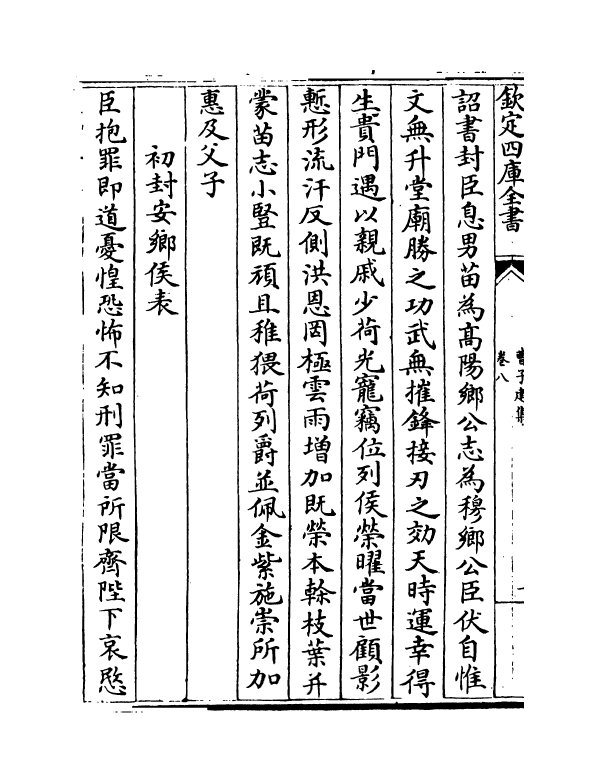 欽定四庫全書
曹子建集
卷八
詔書封臣息男苗為高陽鄉公志為穆鄉公臣伏自惟
文無升堂廟勝之功武無摧鋒接刃之効天時運幸得
生貴門遇以親戚少荷光寵竊位列侯榮曜當世顧影
慙形流汗反側洪恩罔極雲雨增加既榮本榦枝葉并
蒙苗志小豎既頑且稚猥荷列爵並佩金紫施崇所加
惠及父子
初封安鄉侯表
臣抱罪即道憂惶恐怖不知刑罪當所限齊陛下哀愍